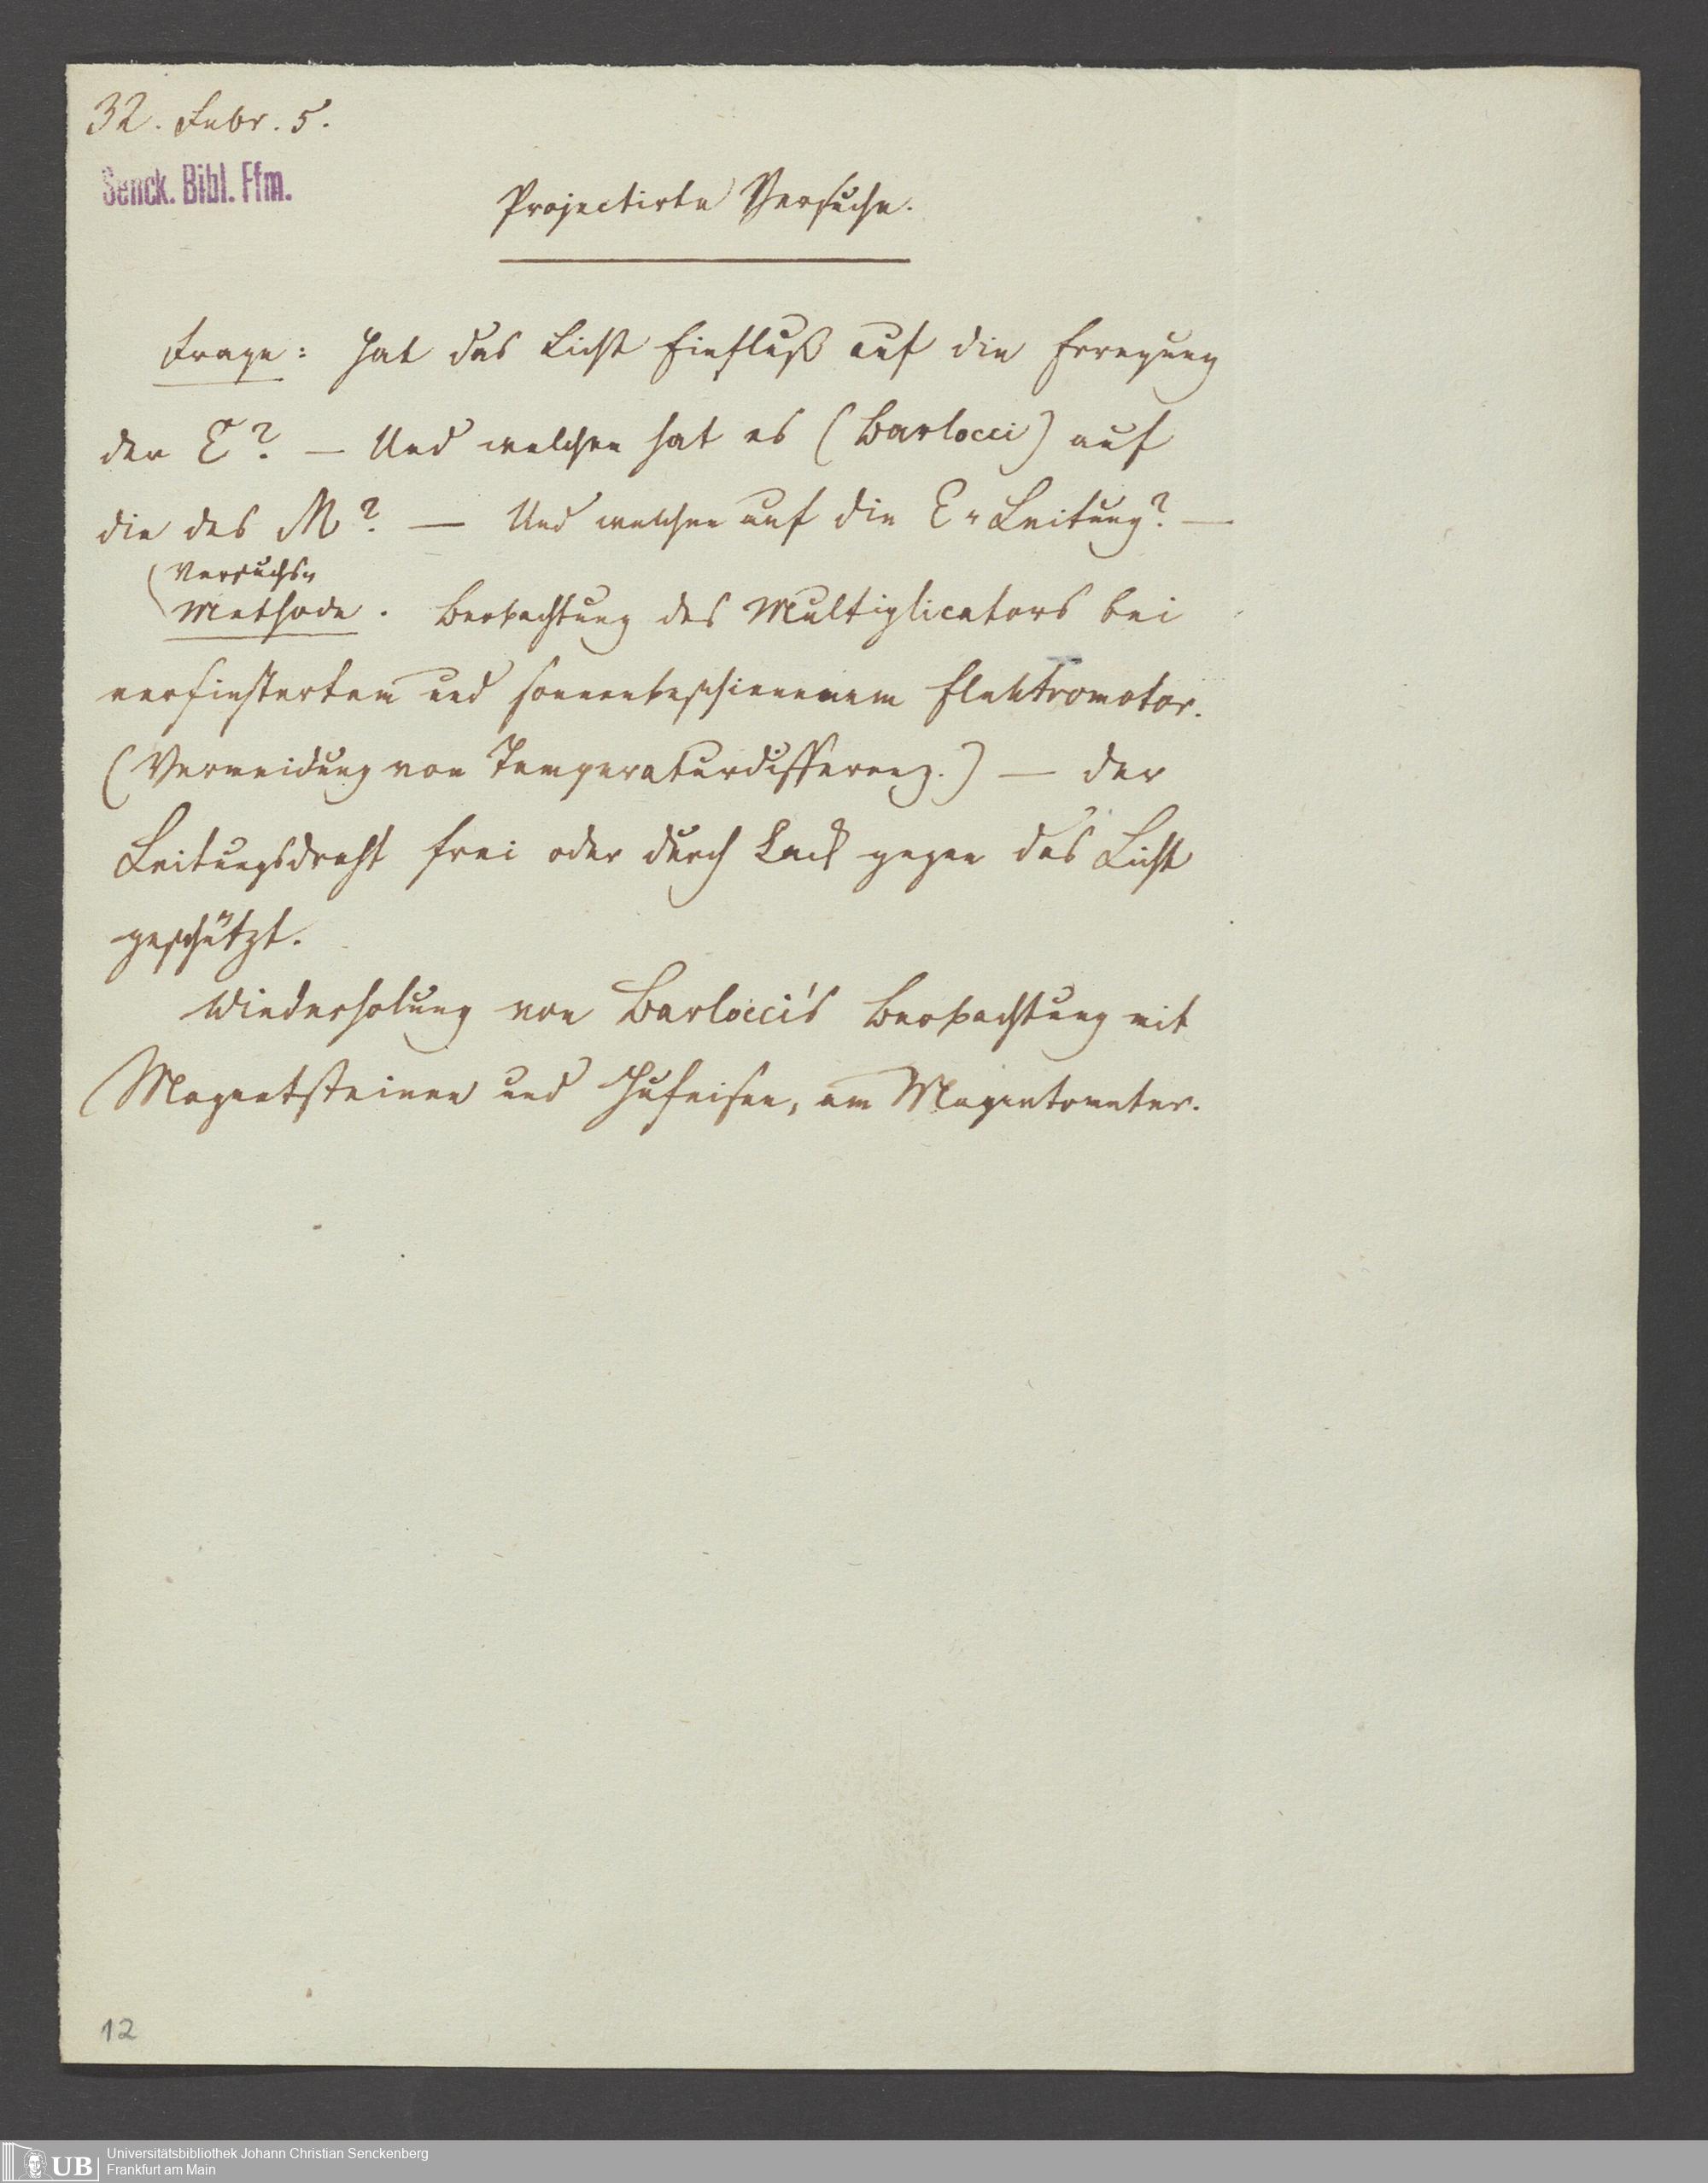 32. Febr. 5.
Senck. Bibl. Ffm.
Projectirte Versuche.
Frage: Hat das Licht Einfluß auf die Erregung
der E? — Und welchen hat es (Barlocci) auf
die des M? — Und welchen auf die E-Leitung? —
(Versuchs-
Methode. Beobachtung des Multiplicators bei
verfinstertem und sonnenbeschienenem Elektromotor.
(Vermeidung von Temperaturdifferenz.) — der
Leitungsdraht frei oder durch Lack gegen das Licht
geschützt.
Wiederholung von Barlocci's Beobachtung mit
Magnetsteinen und Hufeisen, am Magnetometer.
12
UB
Universitätsbibliothek Johann Christian Senckenberg
Frankfurt am Main